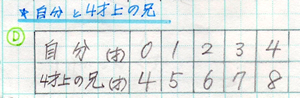 *自分と4才上の兄
D 自分(才) 0 1 2 3 4
4才上の兄(才) 4 5 6 7 8